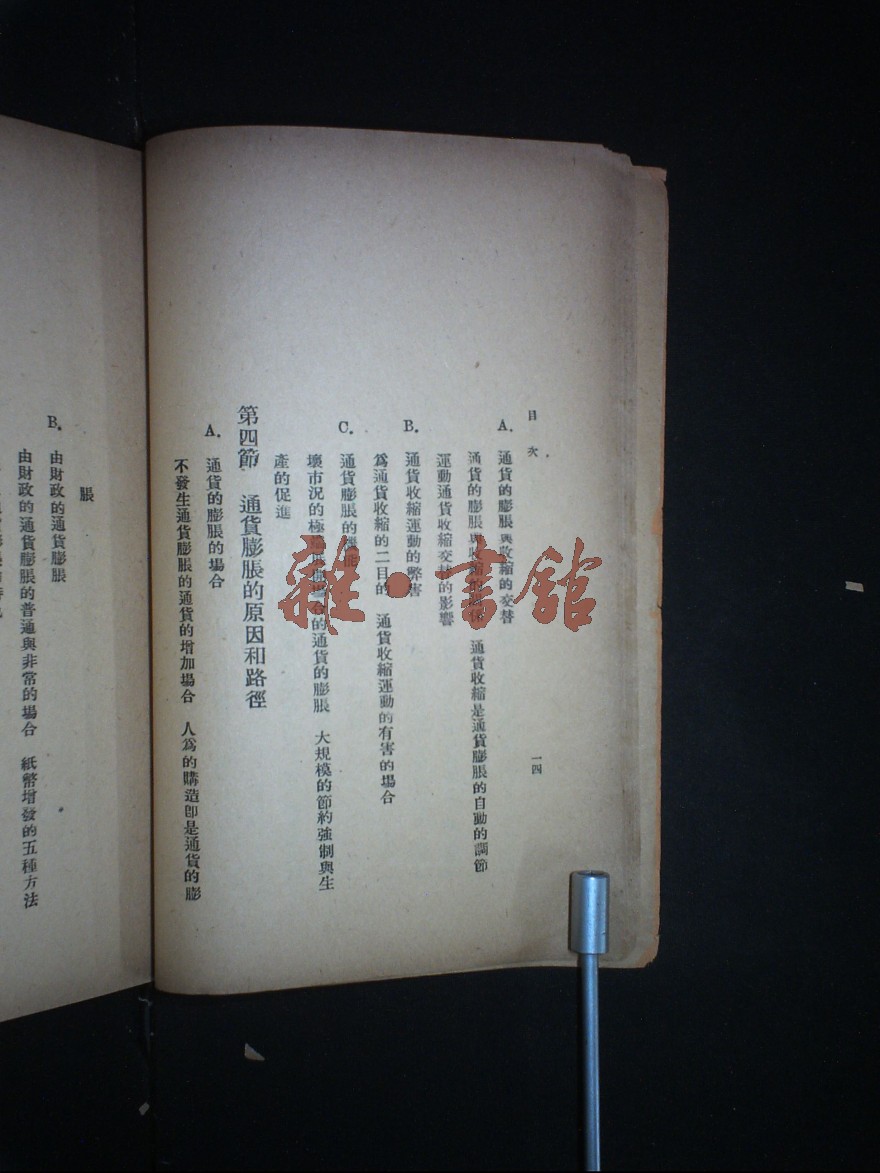 目次
一四
A. 通貨的膨脹與收縮的交替
通貨的膨脹與收縮的關係 通貨收縮是通貨膨脹的自動的調節
運動通貨收縮交替的影響
B. 通貨收縮運動的弊害
爲通貨收縮的二目的 通貨收縮運動的有害的場合
C. 通貨膨脹的機能
壞市況的極 的通貨的膨脹 大規模的節約強制與生
產的促進
第四節 通貨膨脹的原因和路徑
A. 通貨的膨脹的場合
不發生通貨膨脹的通貨的增加場合 人爲的購造卽是通貨的膨
脹
B. 由財政的通貨膨脹
由財政的通貨膨脹的普通與非常的場合 紙幣增發的五種方法
雜·書館